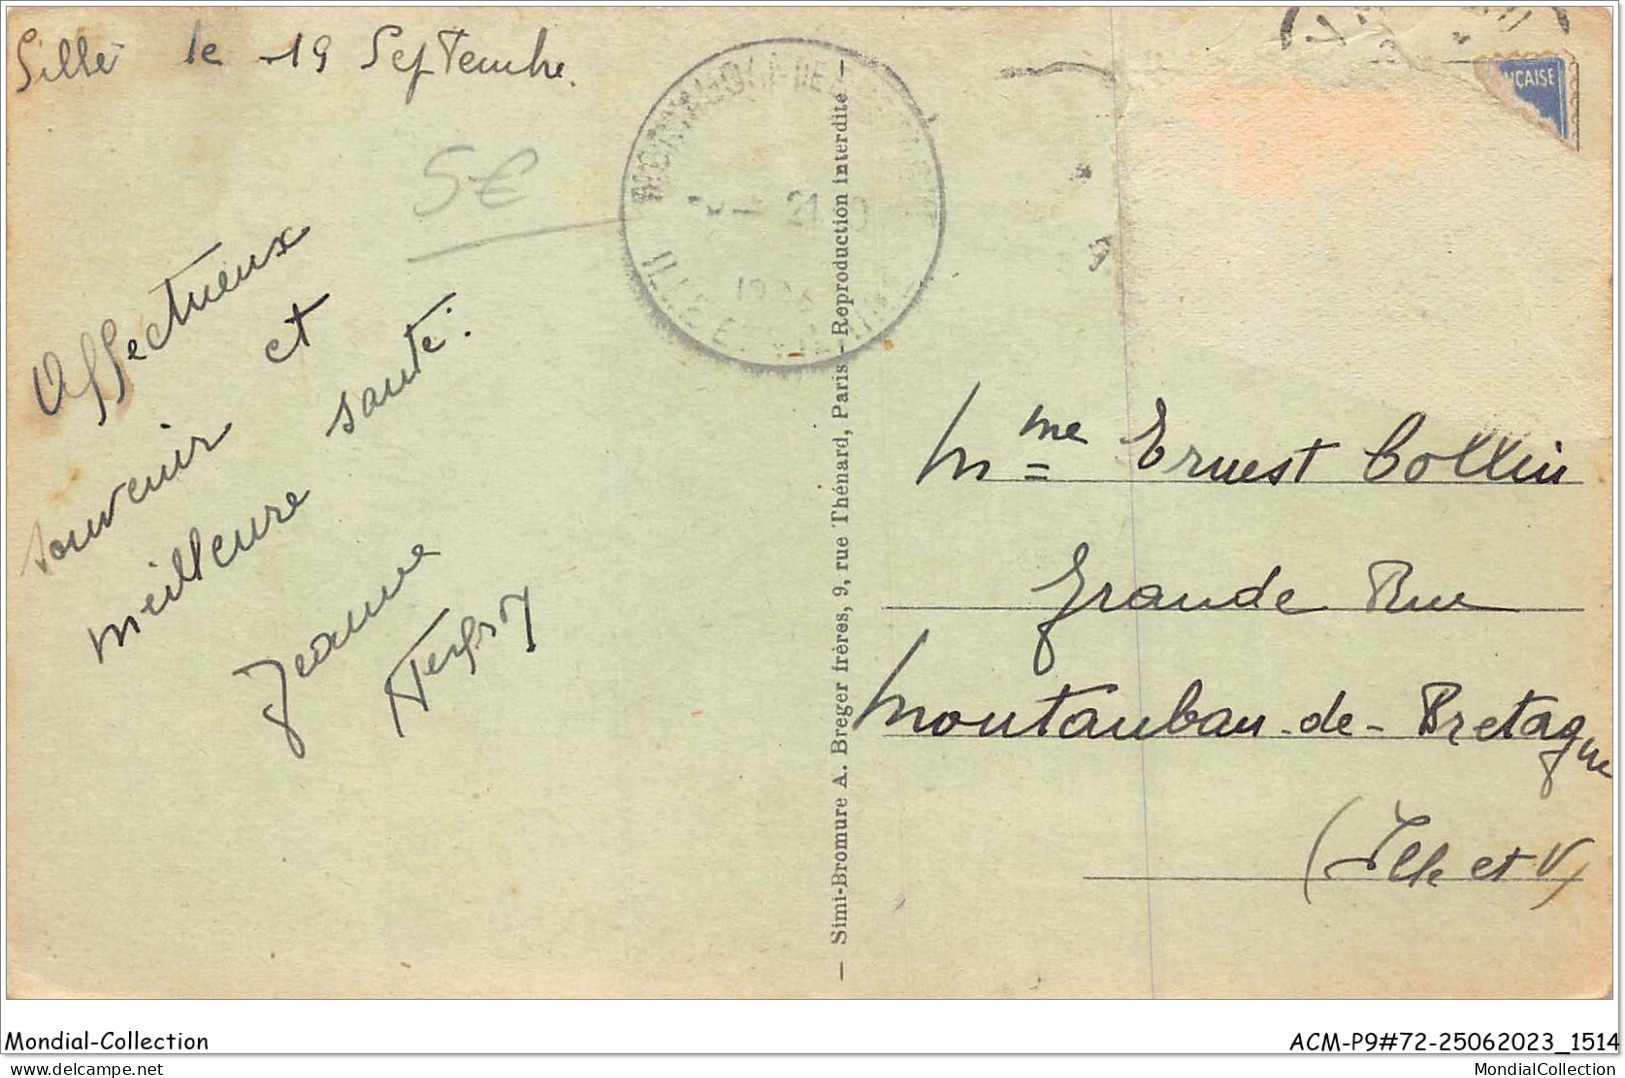 Sillé le 19 Septembre.
5€
Affectueux
souvenir et
meilleure santé.
Jeanne
MONTAUBAN-DE-BRETAGNE
21
ILLE ET VILAINE
— Simi-Bromure A. Breger frères, 9, rue Thénard, Paris — Reproduction interdite —
ÇAISE
Mme Ernest Collin
Grande Rue
Montauban-de-Bretagne
(Ille et V)
Mondial-Collection
ACM-P9#72-25062023_1514
MondialCollection.com
MondialCollection